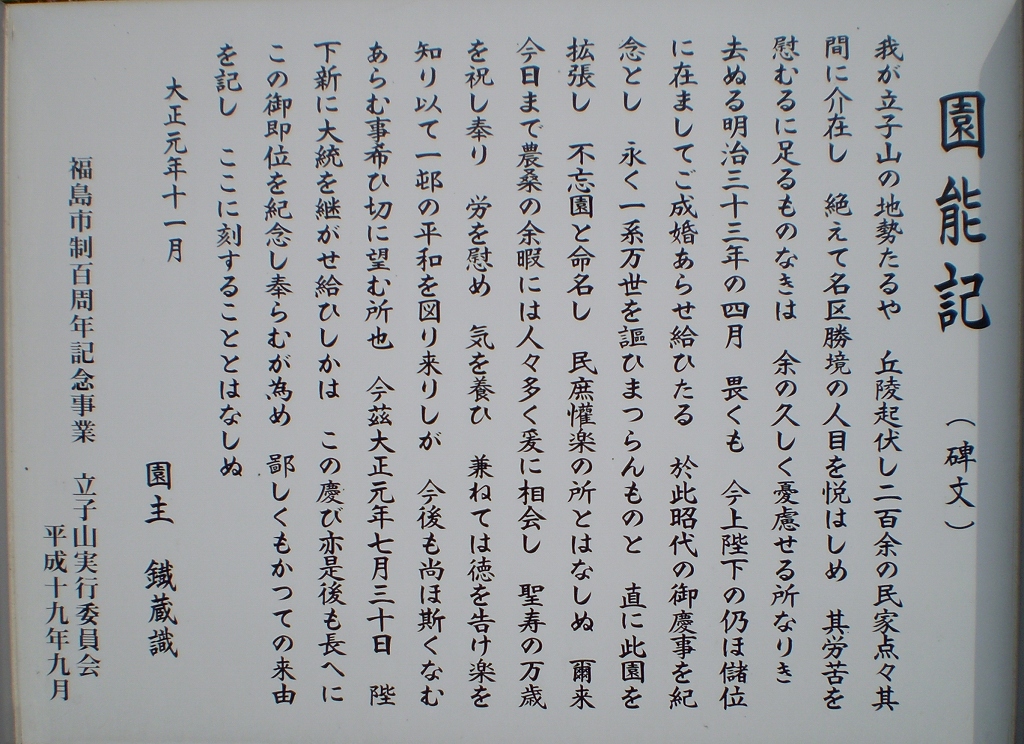 園能記 (碑文)
我が立子山の地勢たるや 丘陵起伏し二百余の民家点々其
間に介在し 絶えて名区勝境の人目を悦はしめ 其労苦を
慰むるに足るものなきは 余の久しく憂慮せる所なりき
去ぬる明治三十三年の四月 畏くも 今上陛下の仍ほ儲位
に在ましてご成婚あらせ給ひたる 於此昭代の御慶事を紀
念とし 永く一系万世を謳ひまつらんものと 直に此園を
拡張し 不忘園と命名し 民庶懽楽の所とはなしぬ 爾来
今日まで農桑の余暇には人々多く爰に相会し 聖寿の万歳
を祝し奉り 労を慰め 気を養ひ 兼ねては徳を告け楽を
知り以て一邨の平和を図り来りしが 今後も尚ほ斯くなむ
あらむ事希ひ切に望む所也 今茲大正元年七月三十日 陛
下新に大統を継がせ給ひしかは この慶び亦是後も長へに
この御即位を紀念し奉らむが為め 鄙しくもかつての来由
を記し ここに刻することとはなしぬ
大正元年十一月
園主 鐵蔵識
福島市制百周年記念事業 立子山実行委員会
平成十九年九月